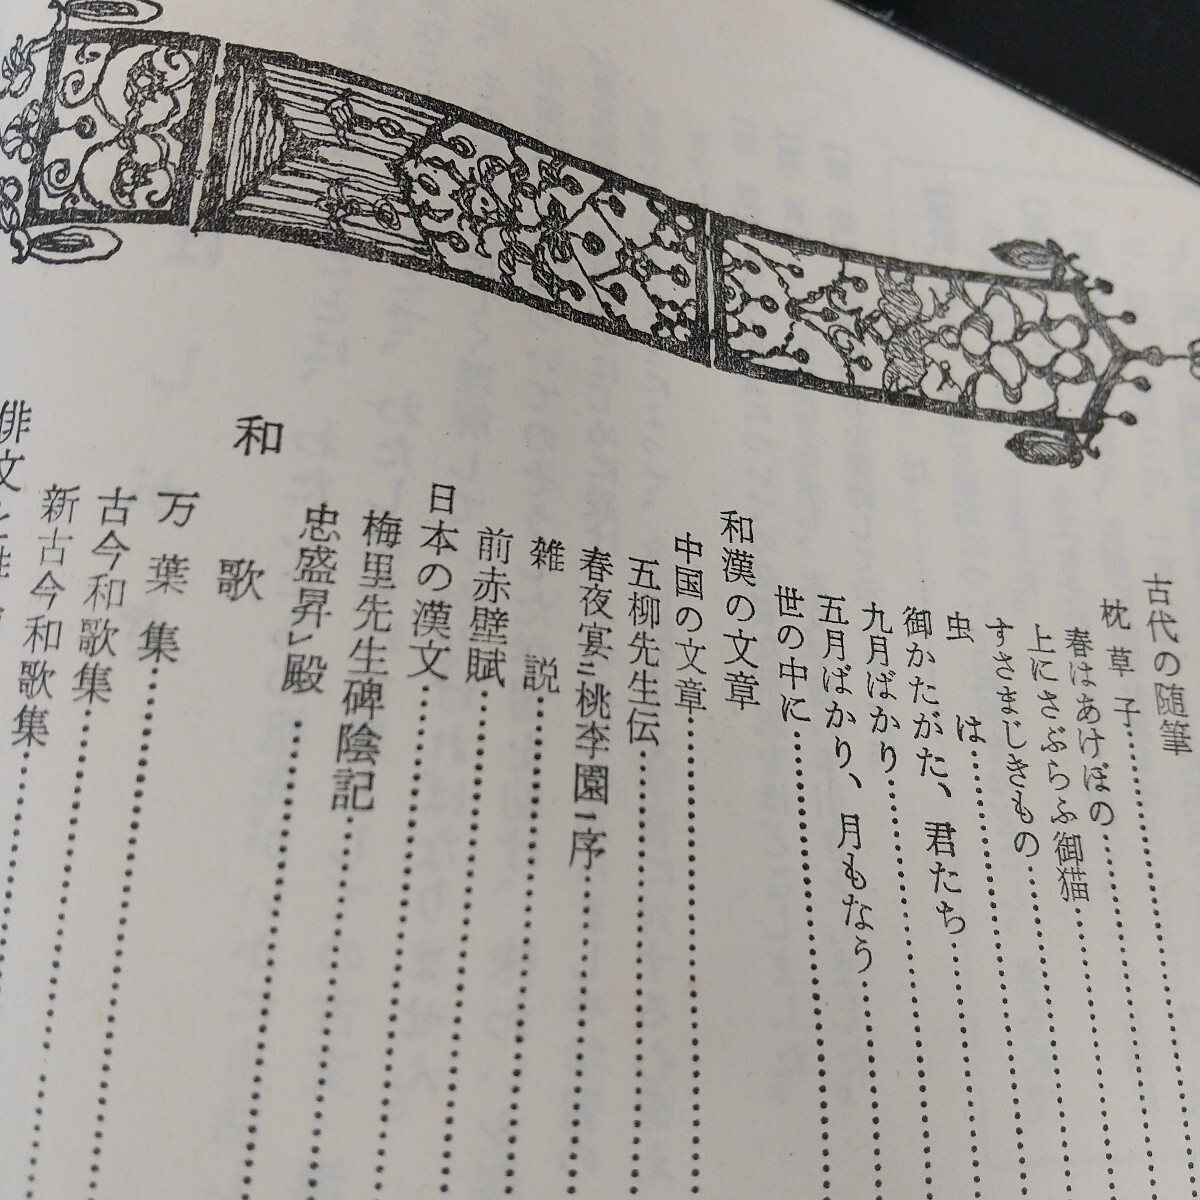 古代の随筆
枕草子
春はあけぼの
上にさぶらふ御猫
すさまじきもの
虫は
御かたがた、君たち
九月ばかり
五月ばかり、月もなう
世の中に
和漢の文章
中国の文章
五柳先生伝
春夜宴ニ桃李園ニ序
雑説
前赤壁賦
日本の漢文
梅里先生碑陰記
忠盛昇レ殿
和歌
万葉集
古今和歌集
新古今和歌集
俳文と